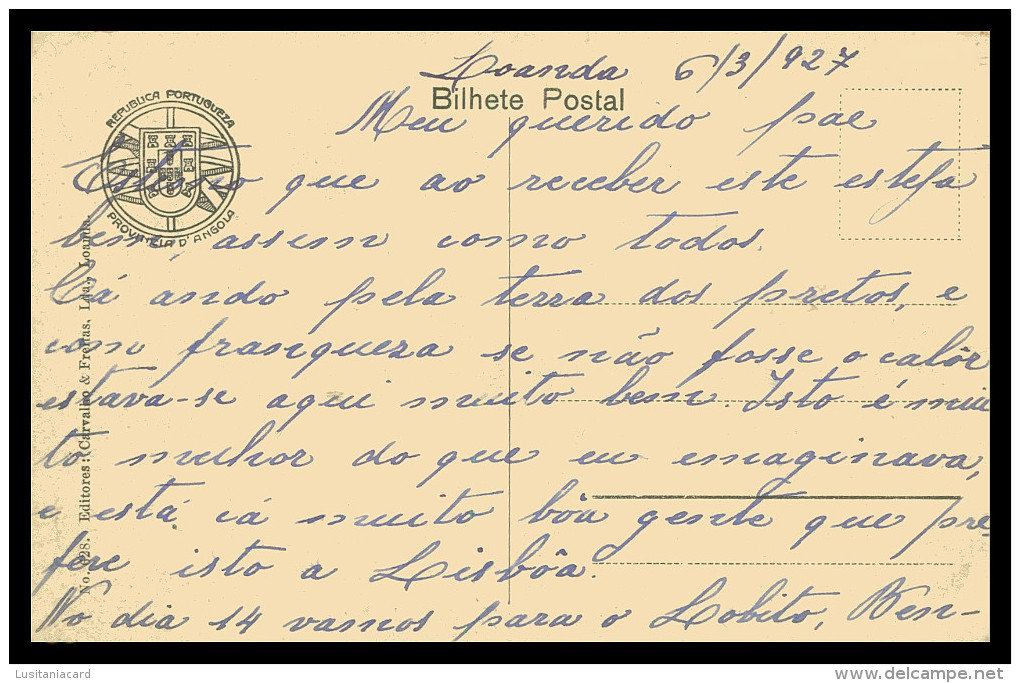 Loanda 6/3/927
Bilhete Postal
REPUBLICA PORTUGUEZA
PROVINCIA D'ANGOLA
Meu querido pae
Estimo que ao receber este esteja
bem, assem como todos.
Cá ando pela terra dos pretos, e
com franqueza se não fosse o calôr
estava-se aqui muito bem. Isto é mui
to melhor do que eu emaginava,
e está cá muito bôa gente que pre
fere isto a Lisbôa.
No dia 14 vamos para o Lobito, Ben-
Editores: (Carvalho & Freitas, Lda., Loanda
Lusitaniacard
delcampe.net